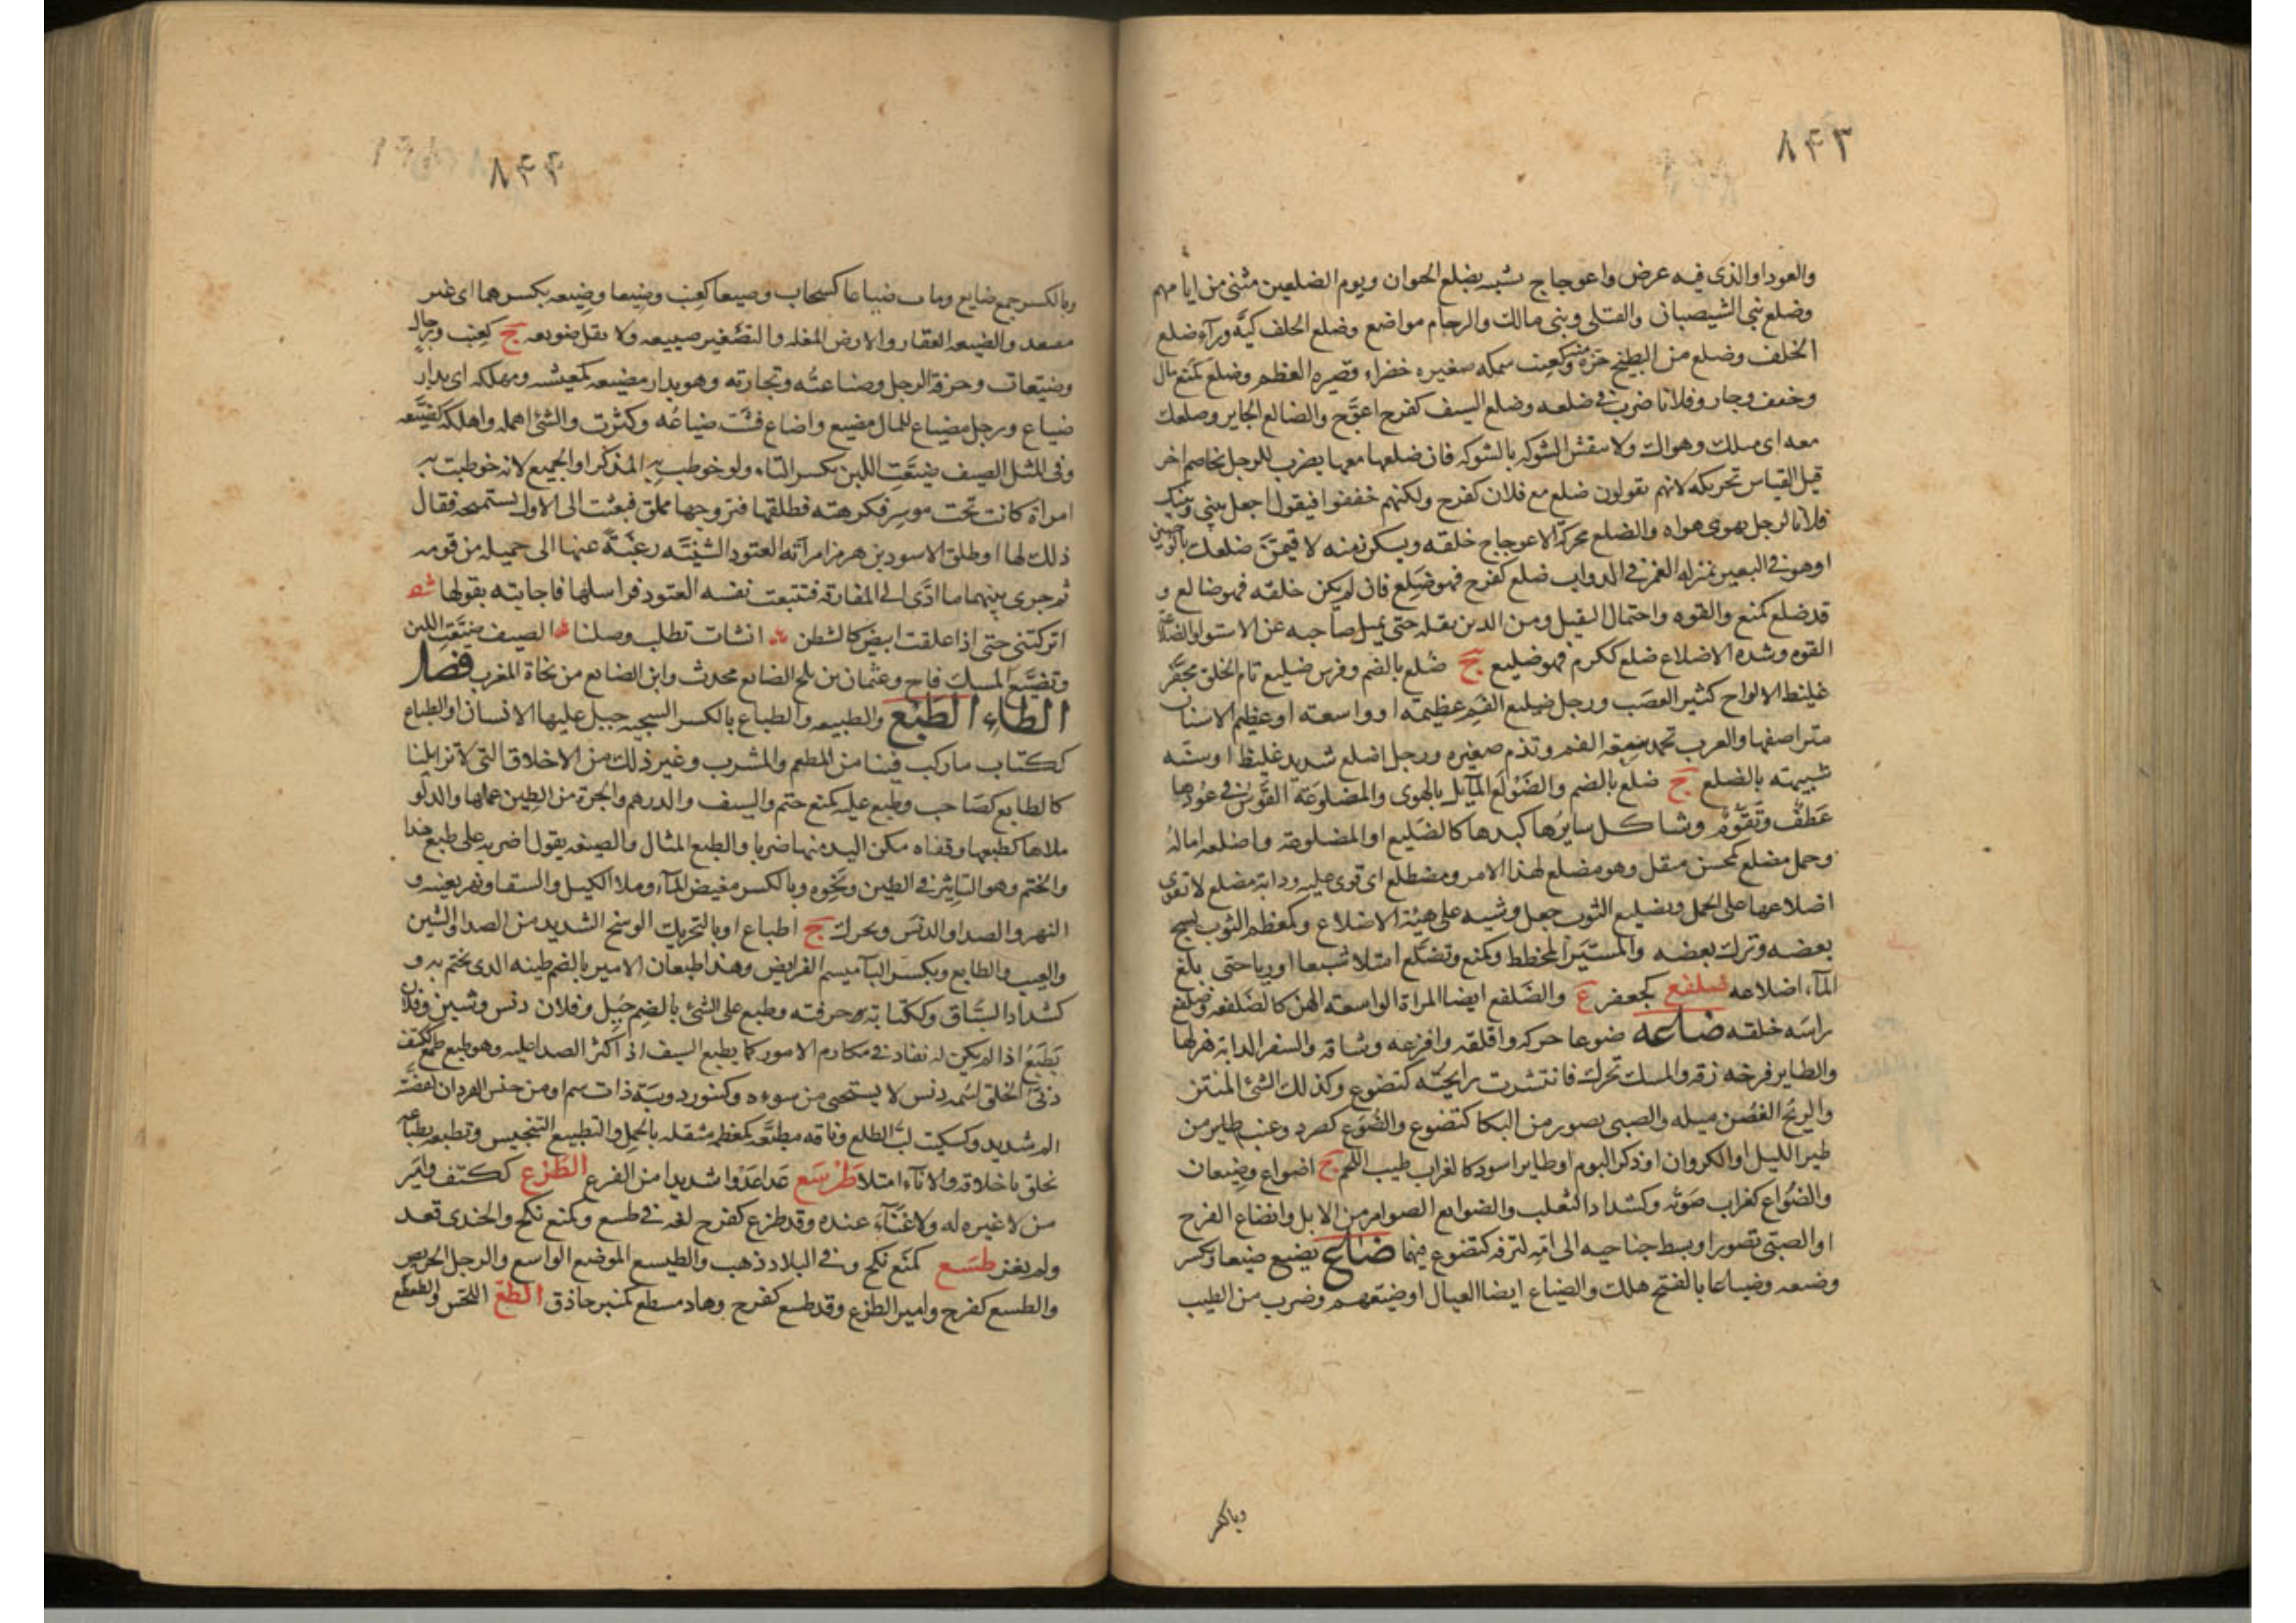 ٨٤٣
والعود او الذى فيه عرض واعوجاج شبه بضلع الحيوان ويوم الضلعين مثنى من ايامهم
وضلع بنى الشيصبان والقتلى وبنى مالك والرجام مواضع وضلع الخلف كيّه ورآء ضلع
الخلف وضلع من البطيخ حزه منه وكعنب سمكه صغيره خضراء قصيره العظم وضلع كمنع مال
وخفف وجار وفلانا ضرب فى ضلعه وضلع السيف كفرح اعوّج والضالع الجاير وضلعك
معه اى ميلك وهواك ولا ىنقش الشوكه بالشوكه فان ضلعها معها يضرب للرجل يخاصم اخر
قيل القياس تحريكه لانهم يقولون ضلع مع فلان كفرح ولكنهم خففوا فيقول اجعل بينى وبينك
فلانا لرجل يهوى هواه والضلع محركة الاعوجاج خلقه ويسكن ومنه لا قيمنّ ضلعك
او هو فى البعير بمنزله الغمز فى الدواب ضلع كفرح فهو ضَلِع فان لم يكن خلقه فهو ضالع و
قد ضلع كمنع والقوه واحتمال الثقيل ومن الدين ثقله حتى يميل صاحبه عن الاستوا والضلاعة
القوه وشده الاضلاع ضلع ككرم فهو ضليع ج ضُلع بالضم وفرس ضليع تام الخلق مجفّر
غليظ الالواح كثير العصَب ورجل ضليع الفم عظيمته او واسعته او عظيم الاسنان
متراصفها والعرب تحمد سعة الفم وتذم صغيره ورجل اضلع شديد غليظ او سنّه
شبيهته بالضلع ج ضلع بالضم والضَوْلع المآيل بالهوى والمضلوعَة القَوْس فى عُودها
عَطَفٌ وتَقَوُّم وشاكل سايرُها كبدها كالضَليع او المضلوعة واضلعه امالهُ
وحمل مضلع كمحسن مثقل وهو مضلع لهذا الامر ومضطلع اى قوى عليه ودابة مضلع لا تقوى
اضلاعها على الحمل وتضليع الثوب جعل وشيه على هيئة الاضلاع وكمعظم الثوب نسج
بعضه وترك بعضه والمسيّر المخطط وكمنع وتضلّع امتلا شبعا اوريا حتى بلغ
المآء اضلاعه ضلفع كجعفر ع والضَلفع ايضا المراة الواسعه الهن كالضلفعه وضلفع
راسَه خلقه ضاعه ضوعا حركه واقلقه وافزعه وشاقه والسفر الدابة هزلها
والطاير فرخه زقه والمسك تحرك فانتشرت رايحته كتضوع وكذلك الشئ المنتن
والريحُ الغُصْن ميله والصبى تضور من البكا كتضوع والضُوَع كصرد وعنب طاير من
طير الليل او الكروان او ذكر البوم او طاير اسود كالغراب طيب اللحم ج اضواع وضيعان
والضُوَاع كغراب صَوته وكشداد الثعلب والضوايع الضوامر من الابل وانضاع الفرخ
او الصبىّ تضور او بسط جناحيه الى امّه لتزقه كتضوع فيهما ضاع يضيع ضيعا ويكسر
وضيعه وضياعا بالفتح هلك والضياع ايضا العيال او ضيّعهم وضرب من الطيب
وبالكسر
٨٤٤
وبالكسر جمع ضايع ومات ضياعا كسحاب وضيعا كعِنَب وضِيعا وضِيعه بكسرهما اى غير
مفتقد والضيعه العقار والارض المغله والتصغير ضييعه ولا ىقل ضويعه ج كعِنب ورجال
وضيعات وحرفة الرجل وصناعتُه وتجارته وهو بدار مضيعه كمعيشه ومهلكه اى بدار
ضياع ورجل مضياع للمال مضيع واضاع فشت ضياعُه وكثرت والشئ اهمله واهلكه كضَيَّعه
وفى المثل الصيف ضيّعَتِ اللبن بكسر التاء ولو خوطب به المذكر او الجميع لانه خوطبت به
امراة كانت تحت موسِر فكرهته فطلقها فتزوجها مملق فبعثت الى الاول تستمنحه فقال
ذلك لها او طلق الاسود بن هرمز امرأته العتود الشنيّه رغبةً عنها الى جميله من قومه
ثم جرى بينهما ما ادّى الى المفارقه فتتبعت نفسه العتود فراسلها فاجابته بقولها شعر
اتركتنى حتى اذا علقت ابيض كالشطن انشات تطلب وصلنا الصيف ضيّعتِ اللبن
وتضيّع المسك فاح وعثمان بن بلج الضايع محدث وابن الضايع من نحاة المغرب فصل
الطاءِ الطَبْع والطبيعه والطباع بالكسر السجيه جبل عليها الانسان او الطباع
ككتاب ما ركب فينا من المطعم والمشرب وغير ذلك من الاخلاق التى لا تزايلنا
كالطابع كصَاحب وطبع عليه كمنع ختم والسيف والدرهم والجرّة من الطين عملها والدلو
ملاها كطبعها وقفاه مكن اليد منها ضربا والطبع المثال والصيغه يقول اضربه على طبع هذا
والختم وهو التاثير فى الطين ونحوه وبالكسر مغيض المآء وملا الكيل والسقا ونهر بعينه و
النهر والصدا والدنَس ويحرك ج اطباع او بالتحريك الوسخ الشديد من الصدا والشين
والعيب والطابع وبكسر البآ ميسم الفرايض وهذا طبعان الامير بالضم طينه الذى يختم به و
كشداد السيّاف وككتابة حرفته وطبع على الشئ بالضم جُبل وفلان دنس وشين وفلان
يَطْبَع اذا لم يكن له نفاذ فى مكارم الامور كما يطبع السيف اذ اكثر الصدا عليه وهو طبع طمع ككتف
دنىّ الخلق لئيمه دنس لا يستحيى من سوءه وكتنور دويبّة ذات سم او من جنس القردان لعضّته
الم شديد وكسكيت لبّ الطلع وناقه مطبّعه كمعظمه مثقله بالحِمل والتطبيع التنجيس وتطبع بطباعه
تخلق باخلاقه والانآء امتلا طَرْسَع عَدا عَدْوا شديدا من الفزع الطَزِع ككتف وامير
من لا غيره له ولا غَنَآءَ عنده وقد طزع كفرح لغه فى طسع وكمنع نكح والجندى قعد
ولم يغز طَسَع كمنَع نكح وفى البلاد ذهب والطيسع الموضع الواسع والرجل الحريص
والطسع كفرح وامير الطزع وقد طسع كفرح وهاد مسطع كمنبر حاذق الطَّعّ اللحَس والطعطع